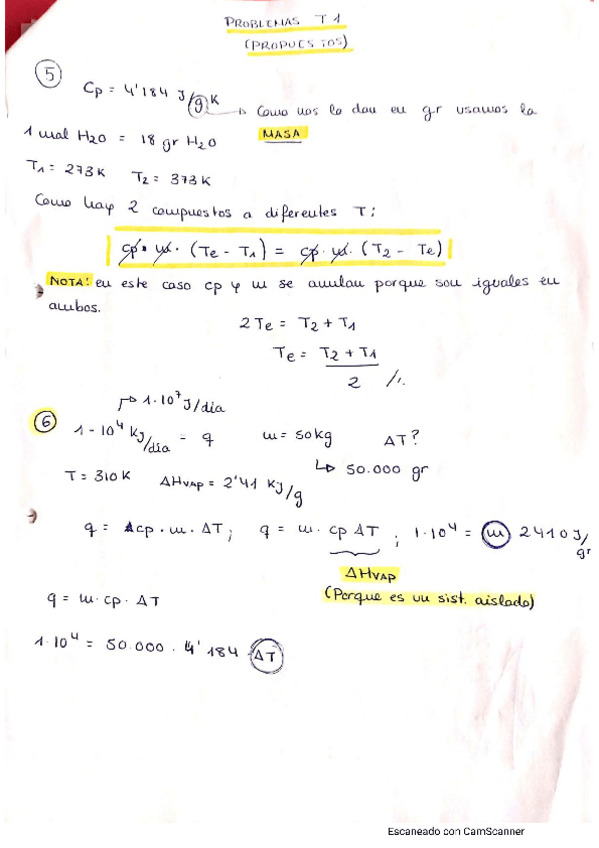 PROBLEMAS T 1
(PROPUESTOS)
5
Cp = 4'184 J/g K
↳ Como nos lo dan en gr usamos la
MASA
1 mol H2O = 18 gr H2O
T1 = 273 K   T2 = 373 K
Como hay 2 compuestos a diferentes T:
cp · m · (Te - T1) = cp · m · (T2 - Te)
NOTA! en este caso cp y m se anulan porque son iguales en
ambos.
2Te = T2 + T1
Te = T2 + T1
2 //.
↱ 1·10⁷ J/día
6
1 - 10⁴ KJ/día = q   m = 50 kg   ΔT?
↳ 50.000 gr
T = 310 K   ΔHVAP = 2'41 KJ/g
q = cp · m · ΔT; q = m · cp ΔT ; 1·10⁴ = m 2410 J/gr
ΔHVAP
(Porque es un sist. aislado)
q = m · cp · ΔT
1·10⁴ = 50.000 · 4'184 · ΔT
Escaneado con CamScanner